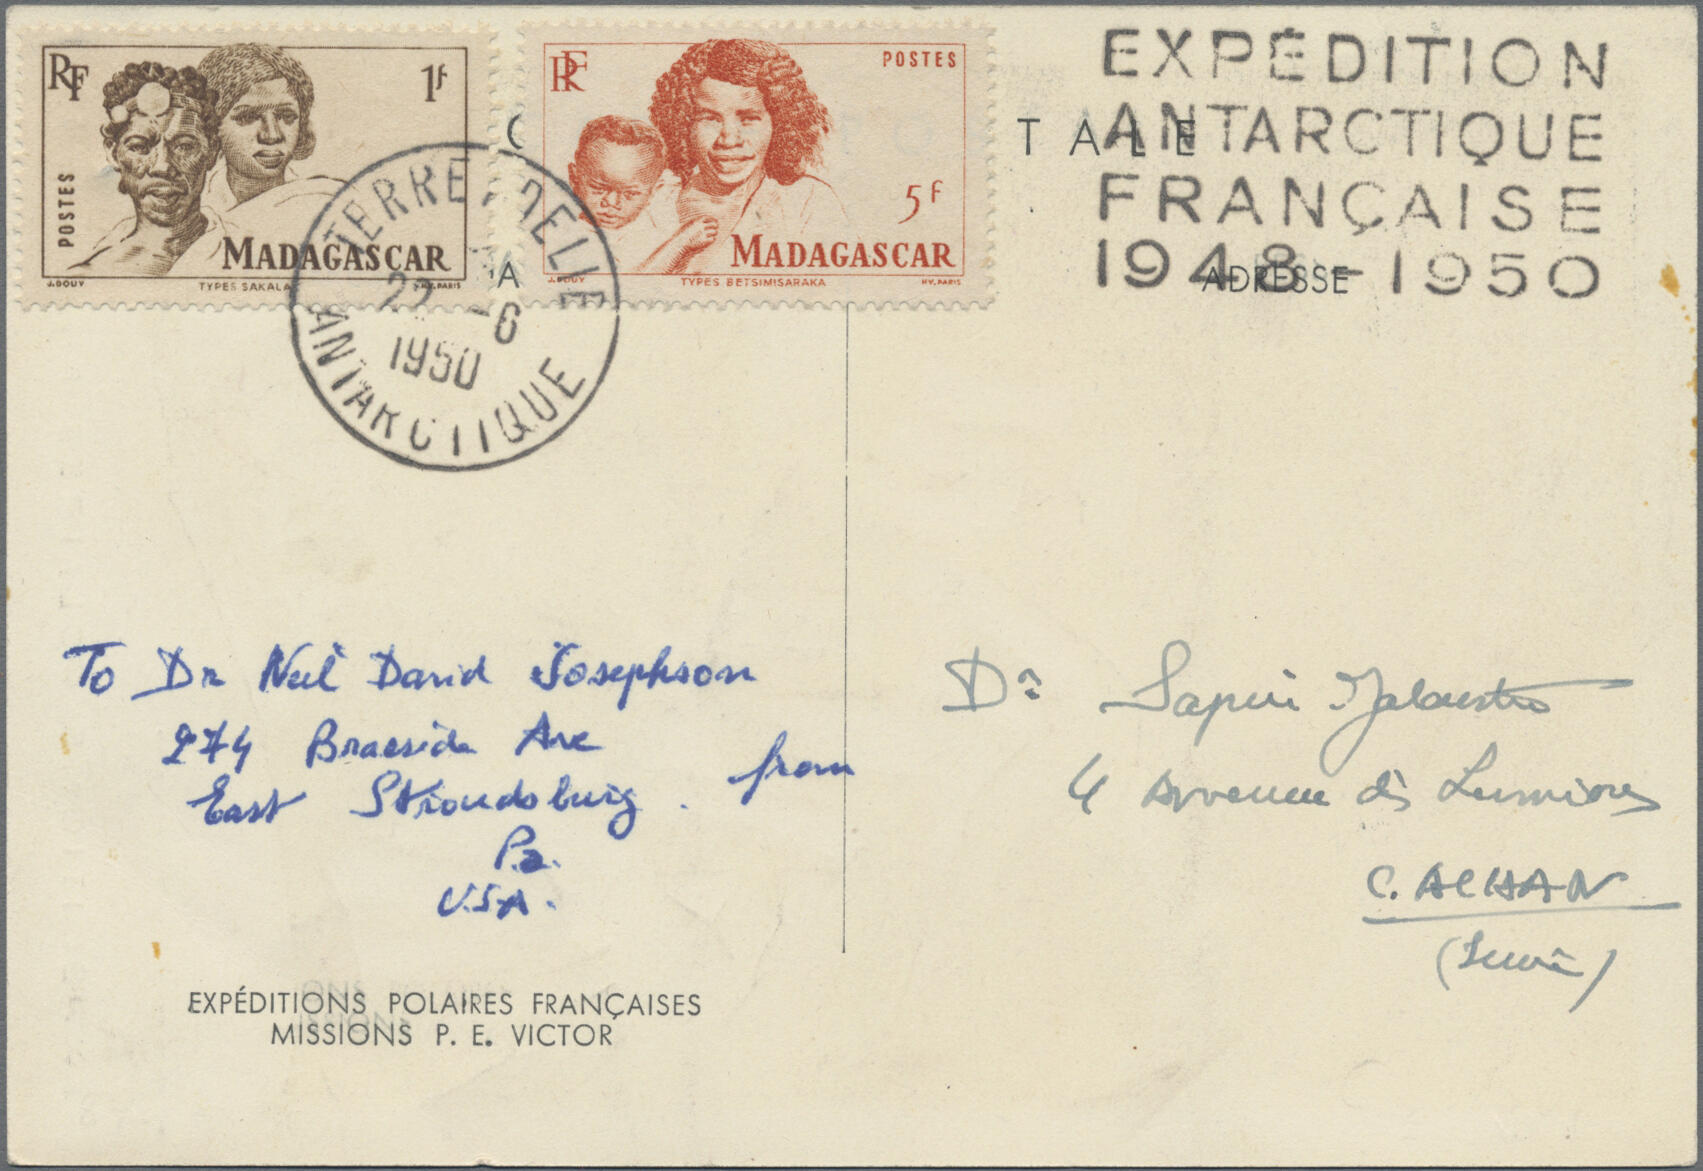 RF
1f
POSTES
MADAGASCAR
J. DOUY
TYPES SAKALA
HV. PARIS
RF
POSTES
5f
MADAGASCAR
TYPES BETSIMISARAKA
HV. PARIS
TERRE ADELIE
22 -6
1950
ANTARCTIQUE
EXPÉDITION
ANTARCTIQUE
FRANÇAISE
1948-1950
TALE
ADRESSE
To Dr Neil David Josephson
274 Braeside Ave
East Stroudsburg. from
Pa.
U.S.A.
EXPÉDITIONS POLAIRES FRANÇAISES
MISSIONS P. E. VICTOR
Dr Sapin
4 Avenue des Lumières
CACHAN
(Seine)